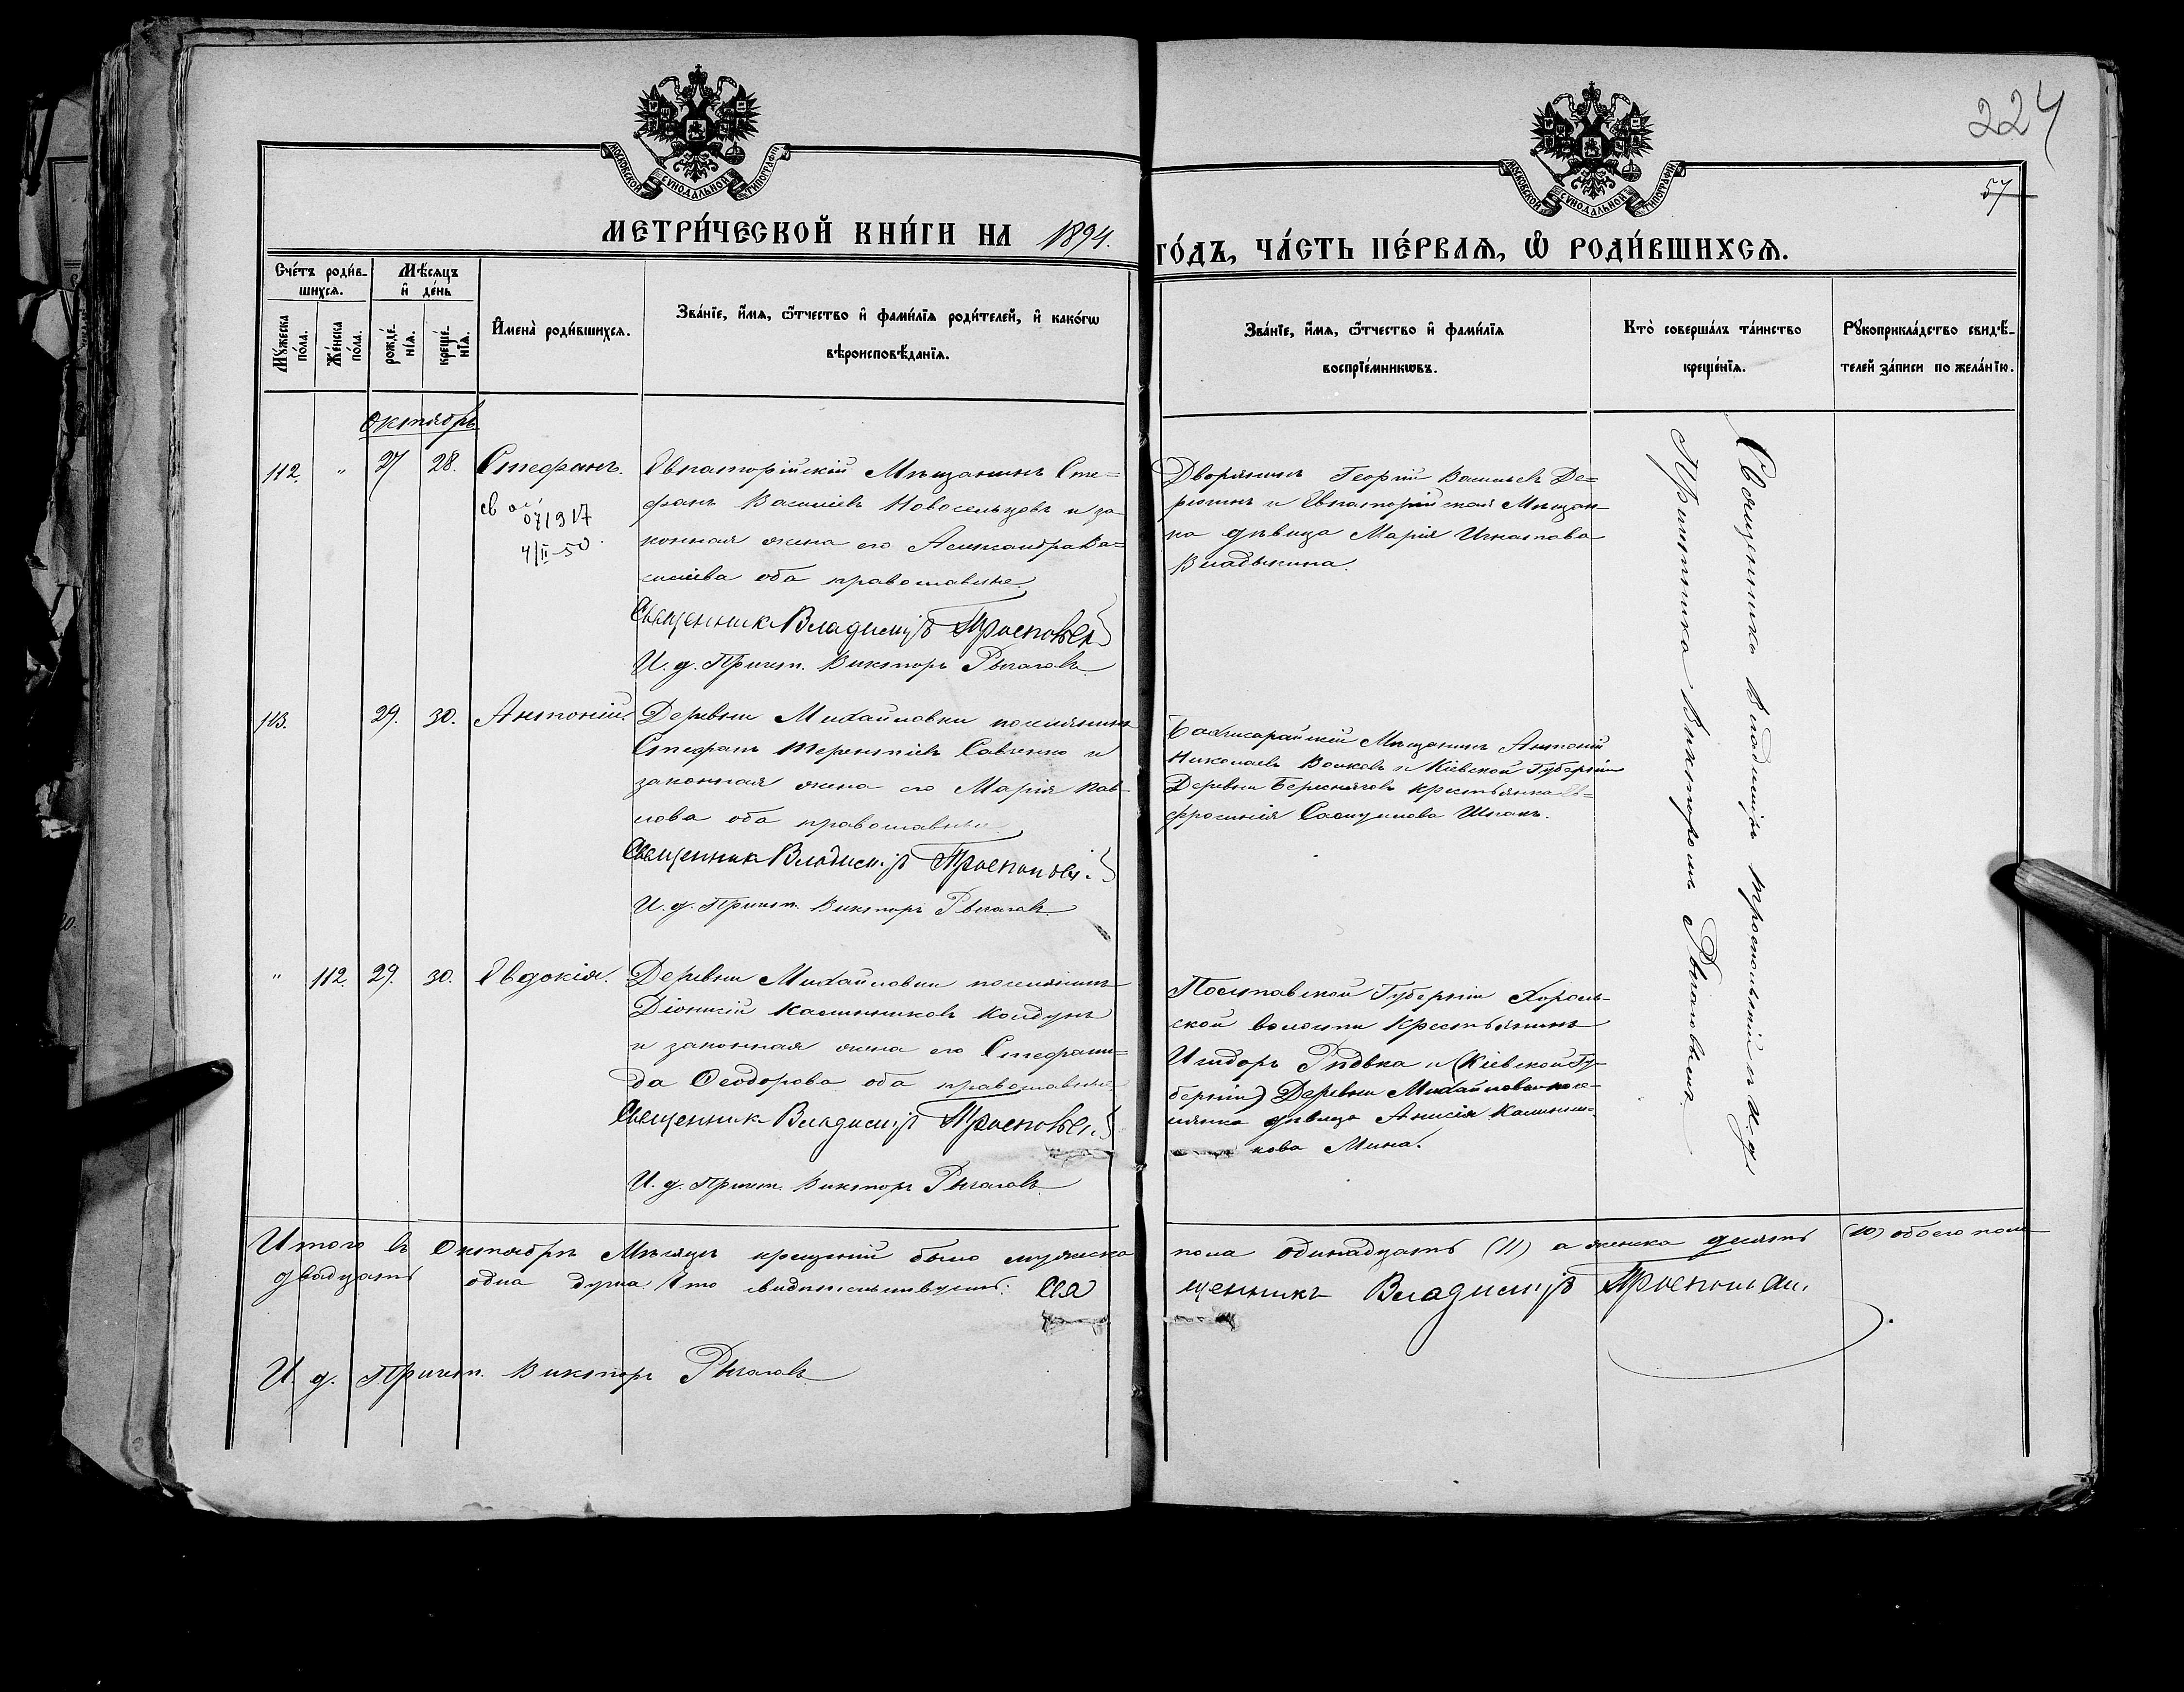 224
57
МОСКОВСКОЙ СѴНОДАЛЬНОЙ ТИПОГРАФІИ
МОСКОВСКОЙ СѴНОДАЛЬНОЙ ТИПОГРАФІИ
МЕТРИ́ЧЕСКОЙ КНИ́ГИ НА 1894.
ГО́ДЪ, ЧА́СТЬ ПЕ́РВАЯ, Ѽ РОДИ́ВШИХСЯ.
Сче́тъ роди́в-
шихся.
Мꙋ́жеска по́ла.
Же́нска по́ла.
Мѣ́сяцъ
и҆ де́нь
рожде́-
нїя.
креще́-
нїя.
И҆мена̀ роди́вшихся.
Зва́нїе, и҆́мя, ѻ҆́тчество и҆ фами́лїя роди́телей, и҆ како́гѡ
вѣроисповѣ́данїя.
Зва́нїе, и҆́мя, ѻ҆́тчество и҆ фами́лїя
воспрїе́мникѡвъ.
Кто̀ соверша́лъ та́инство
креще́нїя.
Рꙋкоприкла́дство свидѣ́-
телей за́писи по жела́нїю.
Октябрь
112. " 27 28. Стефанъ.
св
071917
4/II-50
Евпаторійскій Мѣщанинъ Сте=
фанъ Василіевъ Новосельцовъ и за
конная жена его Александра Ва=
силіева оба православные.
Священникъ Владиміръ
И. д. Причет. Викторъ Рычаговъ
Дворянинъ Георгій Васильевъ Де=
рюгинъ и Евпаторійская Мѣщан-
ка дѣвица Марія Игнатова
Владыкина.
113. 29. 30. Антоній.
Деревни Михайловки поселянинъ
Стефанъ Терентіевъ Савченко и
законная жена его Марія Пав-
лова оба православные
Священникъ Владиміръ
И. д. Причет. Викторъ Рычаговъ
Бахчисарайскій Мѣщанинъ Антоній
Николаевъ Волковъ и Кіевской Губерніи
Деревни Береснягова крестьянка Ев-
фросинія Шпакъ.
" 112. 29. 30. Евдокія.
Деревни Михайловки поселянинъ
Діонисій Калинниковъ Колдунъ
и законная жена его Стефани=
да Ѳеодорова оба православные
Священникъ Владиміръ
И. д. Причет. Викторъ Рычаговъ
Полтавской Губерніи Хороль-
ской волости Крестьянинъ
Исидоръ и (Кіевской Гу-
берніи) Деревни Михайловки посе-
лянка дѣвица Анисія Калинни-
кова Мина.
Священникъ Владиміръ и И. д.
Причетника Викторомъ
Итого въ Октябрѣ Мѣсяцѣ крещеній было мужска
пола одинадцать (11) а женска десять (10) обоего пола
двадцать одна душа. Что свидѣтельствуютъ: Свя
щенникъ Владиміръ
И. д. Причет. Викторъ Рычаговъ